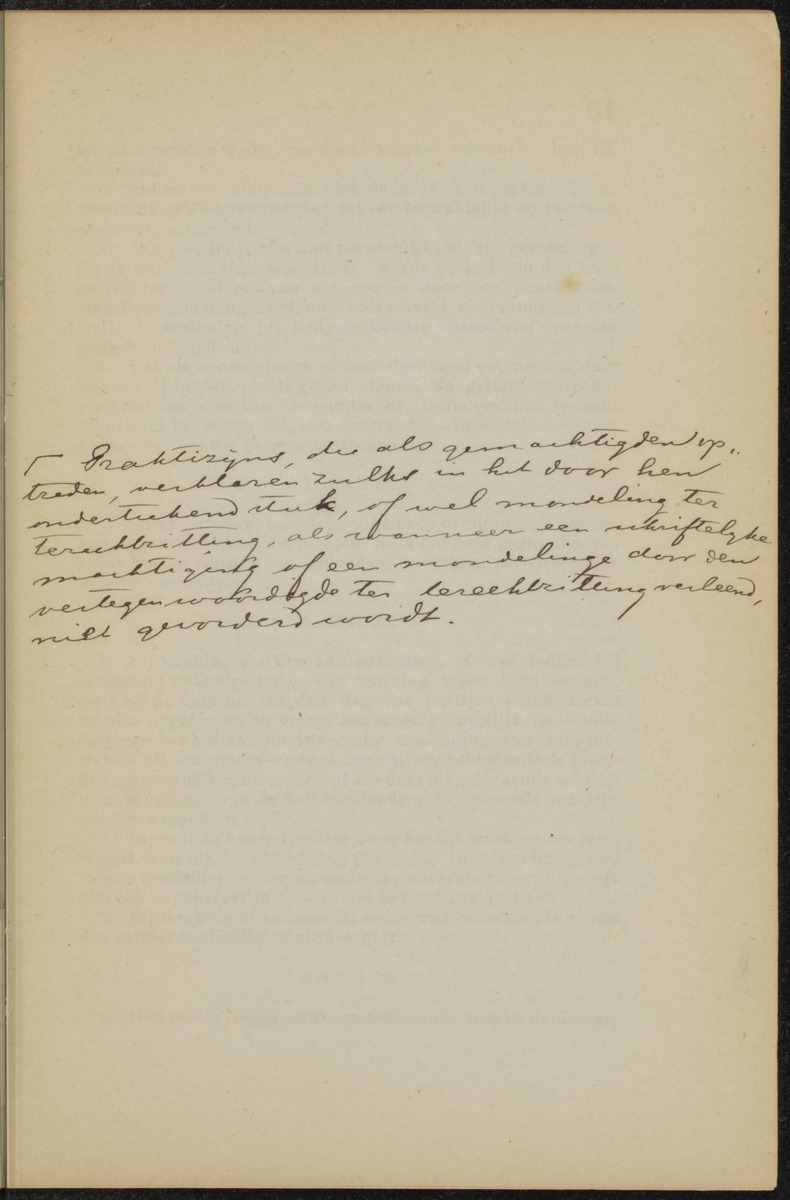 ⌈ Praktizijns, die als gemachtigden op-
treden, verklaren zulks in het door hen
onderteekend stuk, of wel mondeling ter
terechtzitting, als wanneer een schriftelijke
machtiging of een mondelinge door den
vertegenwoordigde ter terechtzitting verleend,
niet gevorderd wordt.